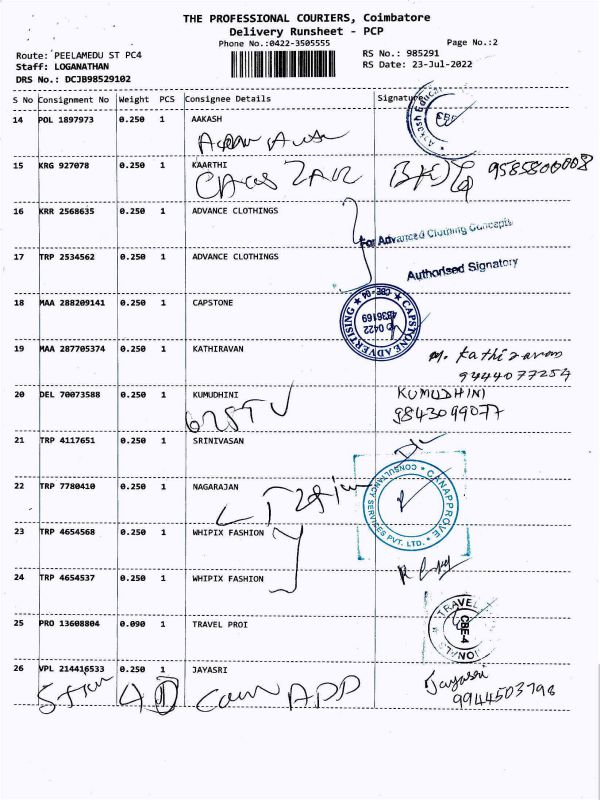 THE PROFESSIONAL COURIERS, Coimbatore
Delivery Runsheet - PCP
Phone No.:0422-3505555
Page No.:2
Route: PEELAMEDU ST PC4
RS No.: 985291
Staff: LOGANATHAN
RS Date: 23-Jul-2022
DRS No.: DCJB98529102
S No Consignment No Weight PCS Consignee Details Signature
14 POL 1897973 0.250 1 AAKASH
15 KRG 927078 0.250 1 KAARTHI
9585800008
16 KRR 2568635 0.250 1 ADVANCE CLOTHINGS
For Advanced Clothing Concepts
17 TRP 2534562 0.250 1 ADVANCE CLOTHINGS
Authorised Signatory
18 MAA 288209141 0.250 1 CAPSTONE
CAPSTONE ADVERTISING
CBE-04
0422
4336169
19 MAA 287705374 0.250 1 KATHIRAVAN
9444077254
20 DEL 70073588 0.250 1 KUMUDHINI
KUMUDHINI
9843099077
21 TRP 4117651 0.250 1 SRINIVASAN
22 TRP 7780410 0.250 1 NAGARAJAN
CANAPPROVE
CONSULTANCY SERVICES PVT. LTD.
23 TRP 4654568 0.250 1 WHIPIX FASHION
24 TRP 4654537 0.250 1 WHIPIX FASHION
25 PRO 13608804 0.090 1 TRAVEL PROI
TRAVEL
CBE-4
26 VPL 214416533 0.250 1 JAYASRI
Jayasri
9944503798